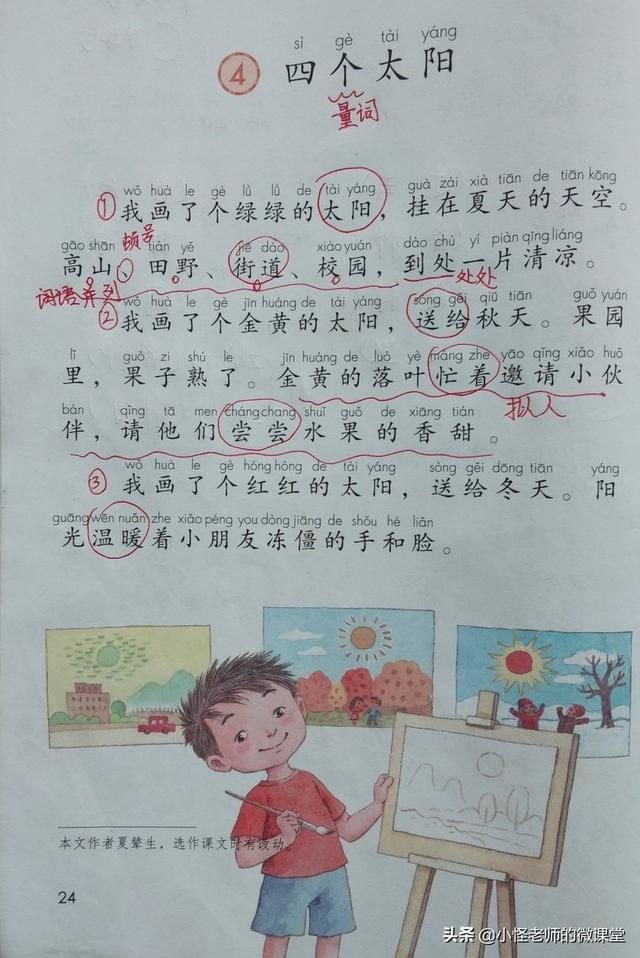 sì gè tài yáng
4 四个太阳
量词
wǒ huà le gè lǜ lǜ de tài yáng guà zài xià tiān de tiān kōng
①我画了个绿绿的太阳，挂在夏天的天空。
gāo shān tián yě jiē dào xiào yuán dào chù yí piàn qīng liáng
顿号
高山、田野、街道、校园，到处一片清凉。
词语并列
处处
wǒ huà le gè jīn huáng de tài yáng sòng gěi qiū tiān guǒ yuán
②我画了个金黄的太阳，送给秋天。果园
lǐ guǒ zi shú le jīn huáng de luò yè máng zhe yāo qǐng xiǎo huǒ
里，果子熟了。金黄的落叶忙着邀请小伙
拟人
bàn qǐng tā men cháng chang shuǐ guǒ de xiāng tián
伴，请他们尝尝水果的香甜。
wǒ huà le gè hóng hóng de tài yáng sòng gěi dōng tiān yáng
③我画了个红红的太阳，送给冬天。阳
guāng wēn nuǎn zhe xiǎo péng you dòng jiāng de shǒu hé liǎn
光温暖着小朋友冻僵的手和脸。
本文作者夏辇生，选作课文时有改动。
24
头条 @小怪老师的微课堂